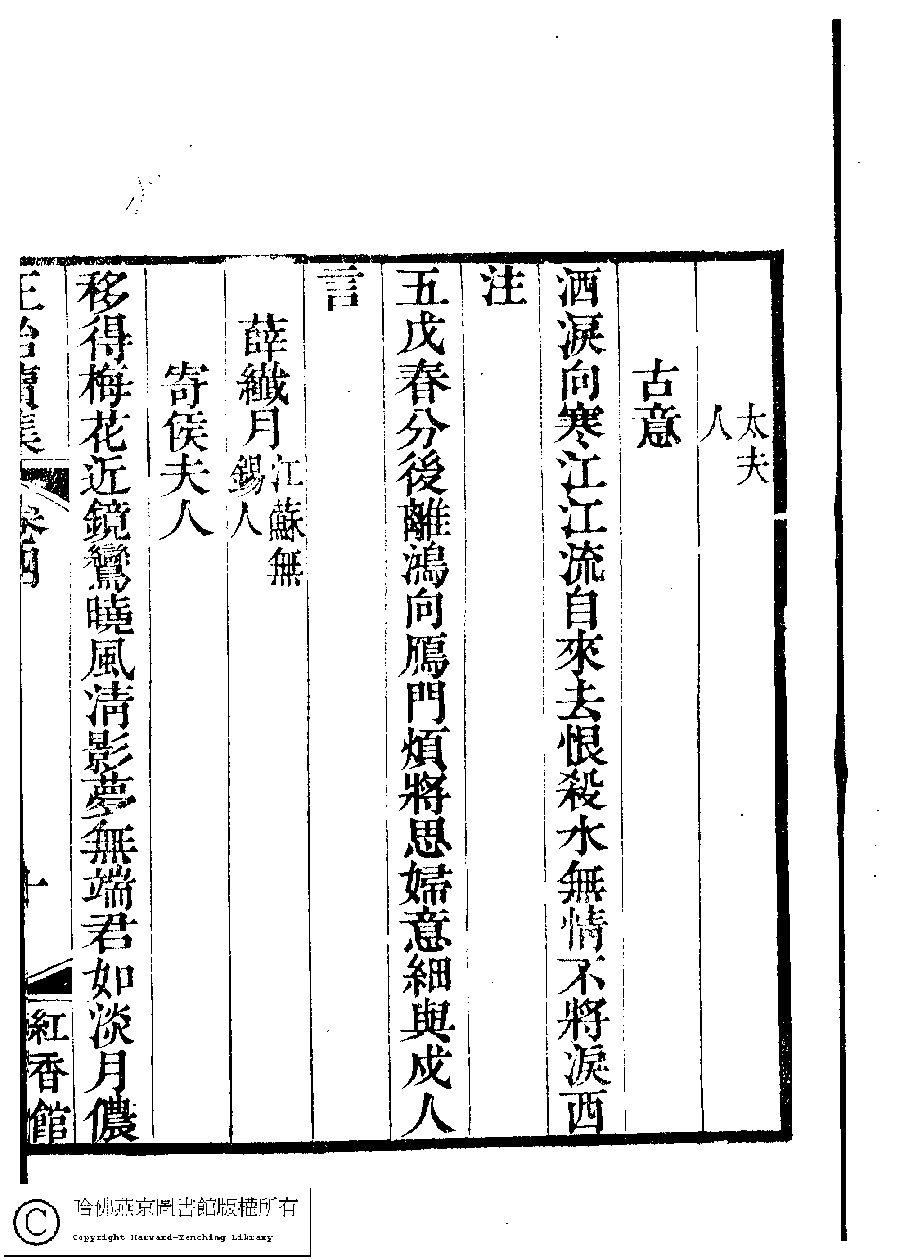 太夫
人
古意
洒淚向寒江江流自來去恨殺水無情不將淚西
注
五戊春分後離鴻向鴈門煩將思婦意細與戍人
言
薛纖月
江蘇無
錫人
寄侯夫人
移得梅花近鏡鸞曉風清影夢無端君如淡月儂
正始續集
卷四
十
紅香館
哈佛燕京圖書館版權所有
© Copyright Harvard-Yenching Library